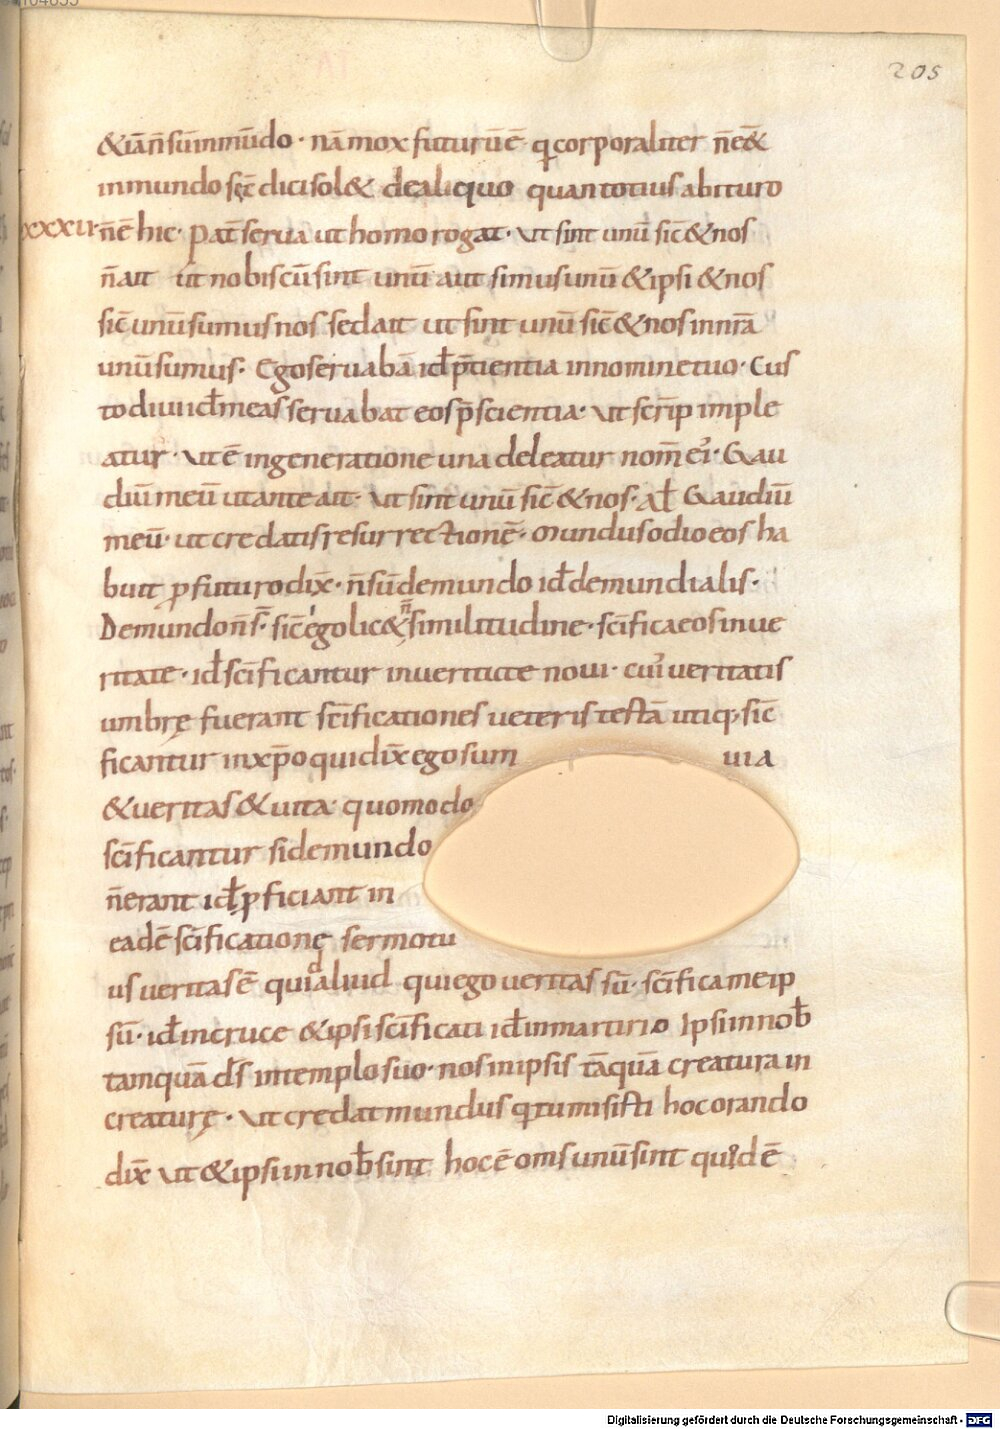 205
&iān̄sūinmūdo · nāmox futurūē q̇corporaliter n̄ē&
inmundo sęc̄ dicisol& dealiquo quantotius abituro
xxxvi n̄ē hic · pat̄ serua ut homo rogat · Ut sint unū sic̄ & nos
n̄ait ut nobiscū sint unū aut simus unū & ipsi & nos
sic̄ unū sumus nos sed ait ut sint unū sic̄ & nos innr̄a
unū sumus · Ego seruabā idp̄scientia innomine tuo · Cus
todiui id̄ meas seruabat eos p̄scientia · Ut scrip imple
atur · Ut ē in generatione una deleatur nom̄ ei᾿ · Gau
diū meū ut ante ait · Ut sint unū sic̄ & nos · al̄ Gaudiū
meū · ut credatis resurrectionē · Mundus odio eos ha
buit p futuro dix̄ · n̄ sū de mundo id̄ de mundialis ·
De mundo n̄ s̄ · sic̄ ego lic& n̄ similitudine · sc̄ifica eos in ue
ritate · id̄ sc̄ificantur in ueritate noui · cui᾿ ueritatis
umbrę fuerant sc̄ificationes ueteris testā utiq; sic̄
ficantur in xp̄o qui dix̄ ego sum uia
& ueritas & uita quomodo
sc̄ificantur si de mundo
n̄ erant id̄ pficiant in
eadē sc̄ificationę sermo tu
us ueritas ē quia aliud qui ego ueritas sū · sc̄ifica meip
sū · id̄ in cruce & ipsi sc̄ificati id̄ in martirio Ipsi in nob̄
tamquā d̄s in templo suo · nos in ipsis tāquā creatura in
creaturę · Ut credat mundus q tu misisti hoc orando
dix̄ Ut & ipsi in nob̄ sint hoc ē om̄s unū sint quid ē
Digitalisierung gefördert durch die Deutsche Forschungsgemeinschaft - DFG